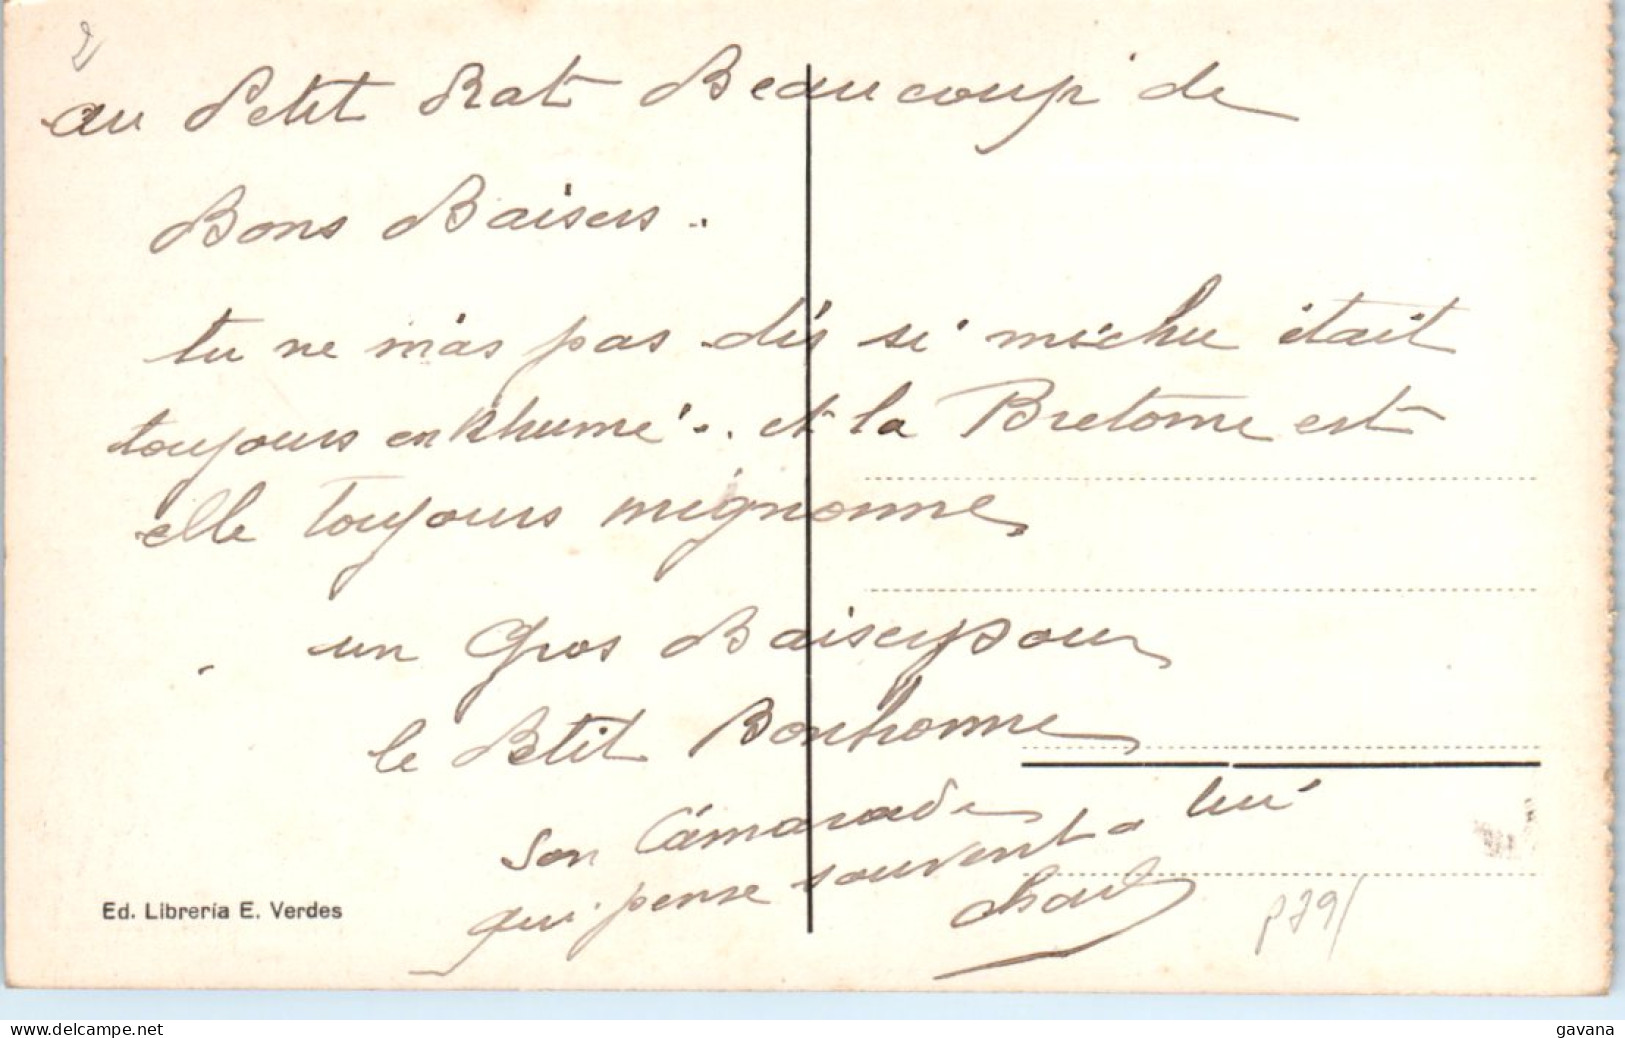 2
au Petit Rat Beaucoup de
Bons Baisers..
tu ne m'as pas dis si michu était
toujours enRhumé.. et la Bretonne est
elle toujours mignonne
un Gros Baiser pour
le Petit Bonhomme
son Camarade
qui pense souvent a lui
Ed. Librería E. Verdes
www.delcampe.net
gavana